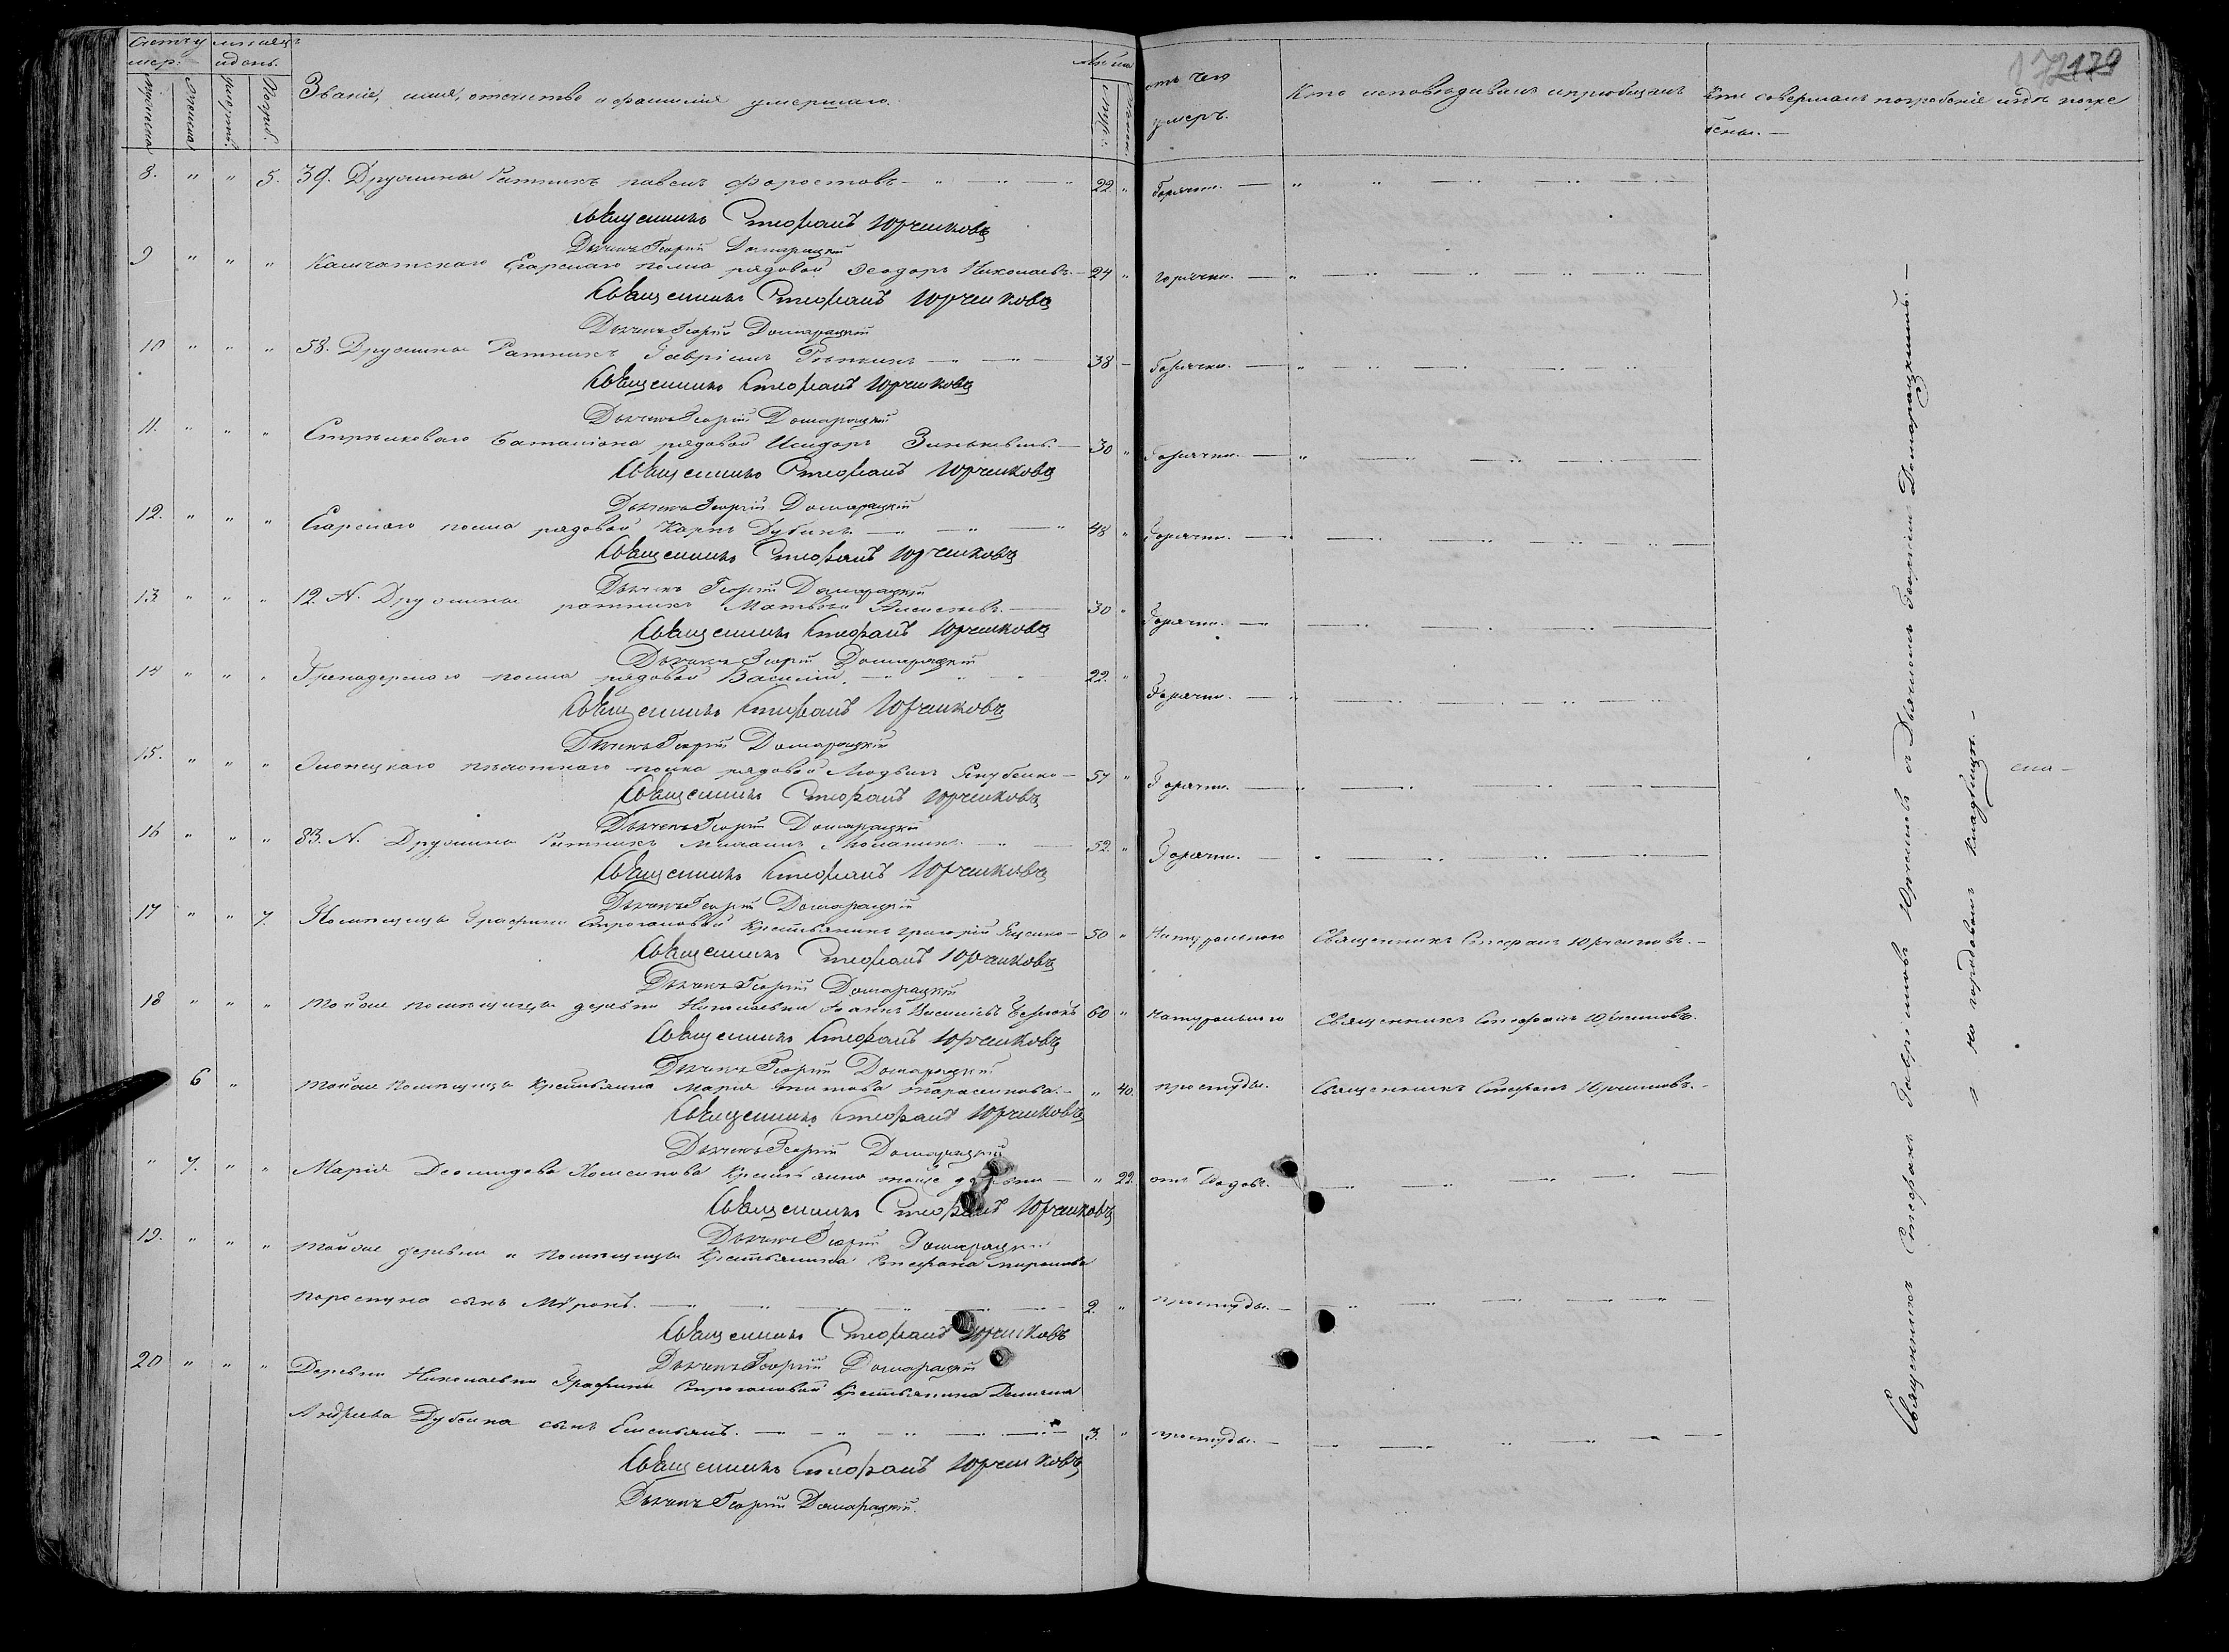 Счетъ умер: мѣсяцъ и день.
мужеска женска умертв. Погреб.
Званіе, имя, отечество и фамилія умершаго.
Лѣта
муж: женск.
отъ чего умеръ.
Кто исповѣдывалъ и пріобщалъ
Кто совершалъ погребеніе и гдѣ погребены. —
172 179
8. " " 5. 39. Дружины Ратникъ павелъ Форостовъ — 22. " Горячки. —
Священникъ Стефанъ Юрчиковъ
Дьячекъ Георгій Домарацкій
9 " " " Камчатского Егарскаго полка рядовой Ѳеодоръ Николаевъ. — 24 " горячки. —
Священникъ Стефанъ Юрчиковъ
Дьячекъ Георгій Домарацкій
10 " " " 58. Дружины Ратникъ Гавріилъ Рѣпкинъ — 38 — Горячки. —
Священникъ Стефанъ Юрчиковъ
Дьячекъ Георгій Домарацкій
11. " " " Стрѣлковаго Баталіона рядовой Исидоръ Зинькевичъ. — 30 " Горячки. —
Священникъ Стефанъ Юрчиковъ
Дьячекъ Георгій Домарацкій
12. " " " Егарского полка рядовой Карпъ Дубикъ — 48 " Горячки. —
Священникъ Стефанъ Юрчиковъ
Дьячекъ Георгій Домарацкій
13 " " " 12. N. Дружины ратникъ Матвѣй Алексѣевъ. — 30 " Горячки. —
Священникъ Стефанъ Юрчиковъ
Дьячекъ Георгій Домарацкій
14 " " " Гренадерского полка рядовой Василій. — 22. " Горячки. —
Священникъ Стефанъ Юрчиковъ
Дьячекъ Георгій Домарацкій
15. " " " Олонецкаго пѣхотнаго полка рядовой Людвигъ Якубенко — 57 " Горячки. —
Священникъ Стефанъ Юрчиковъ
Дьячекъ Георгій Домарацкій
16 " " " 83. N. Дружины Ратникъ Михаилъ — 52. " Горячки. —
Священникъ Стефанъ Юрчиковъ
Дьячекъ Георгій Домарацкій
17 " " 7. Помѣщицы Графини Строгановой Крестьянинъ григорій Яценко — 50 " Натурального Священникъ Стефанъ Юрчиковъ. —
Священникъ Стефанъ Юрчиковъ
Дьячекъ Георгій Домарацкій
18 " " " тойже помѣщицы деревни Николаевки Іоаннъ Василіевъ 60 " натурального Священникъ Стефанъ Юрчиковъ.
Священникъ Стефанъ Юрчиковъ
Дьячекъ Георгій Домарацкій
6 " тойже помѣщицы Крестьянка Марія титова тарасенкова. — " 40. простуды. Священникъ Стефанъ Юрчиковъ. —
Священникъ Стефанъ Юрчиковъ
Дьячекъ Георгій Домарацкій
" 7. " " Марія Деомидова Хоменкова Крестьянка тойже деревни — " 22. отъ Родовъ. —
Священникъ Стефанъ Юрчиковъ
Дьячекъ Георгій Домарацкій
19. " " " тойже деревни и помѣщицы Крестьянина Стефана миронова
сынъ Мѵронъ. — 2. " простуды. —
Священникъ Стефанъ Юрчиковъ
Дьячекъ Георгій Домарацкій
20 " " " Деревни Николаевки Графини Строгановой Крестьянина
Андреева Дубенка сынъ Емельянъ. — 3. " простуды. —
Священникъ Стефанъ Юрчиковъ
Дьячекъ Георгій Домарацкій.
Священникъ Стефанъ Гавріиловъ Юрчиковъ съ Дьячкомъ Георгіемъ Домарацкимъ. —
на городовомъ кладбищѣ. —